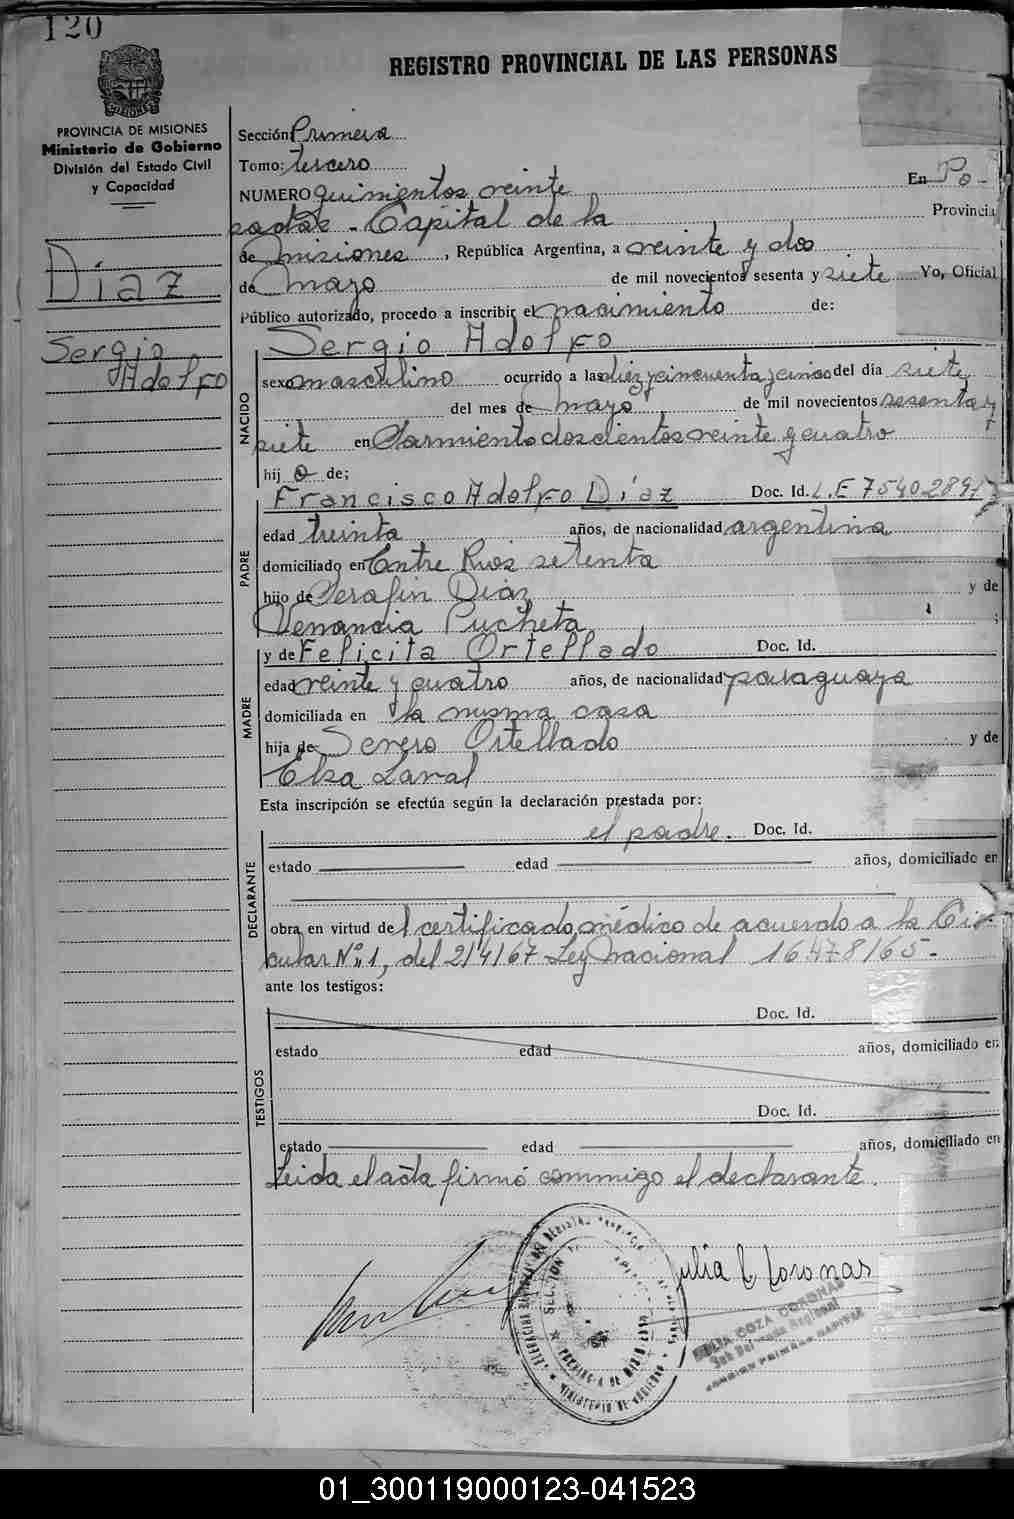 120
REGISTRO PROVINCIAL DE LAS PERSONAS
PROVINCIA DE MISIONES
Ministerio de Gobierno
División del Estado Civil
y Capacidad
Díaz
Sergio
Adolfo
Sección: Primera
Tomo: tercero
NUMERO quinientos veinte En Po-
sadas - Capital de la Provincia
de Misiones, República Argentina, a veinte y dos
de mayo de mil novecientos sesenta y siete Yo, Oficial
Público autorizado, procedo a inscribir el nacimiento de:
Sergio Adolfo
NACIDO
sexo masculino ocurrido a las diez y cincuenta y cinco del día siete
del mes de mayo de mil novecientos sesenta y
siete en Sarmiento doscientos veinte y cuatro
hij o de;
PADRE
Francisco Adolfo Díaz Doc. Id. L.E 7540289
edad treinta años, de nacionalidad argentina
domiciliado en Entre Rios setenta
hijo de Serafin Diaz y de
Venancia Pucheta ;
MADRE
y de Felicita Ortellado Doc. Id.
edad veinte y cuatro años, de nacionalidad paraguaya
domiciliada en la misma casa
hija de Severo Ortellado y de
Elsa Laval
Esta inscripción se efectúa según la declaración prestada por:
DECLARANTE
el padre. Doc. Id.
estado edad años, domiciliado en
obra en virtud de l certificado médico de acuerdo a la Cir-
cular Nº 1, del 2/4/67 Ley Nacional 16.478/65.-
ante los testigos:
TESTIGOS
Doc. Id.
estado edad años, domiciliado en
Doc. Id.
estado edad años, domiciliado en
Leida el acta firmó conmigo el declarante.
Julia C Coronas
COZA CORONAS
SECCION PRIMERA CAPITAL
PROVINCIA DE MISIONES
MINISTERIO DE GOBIERNO
01_300119000123-041523